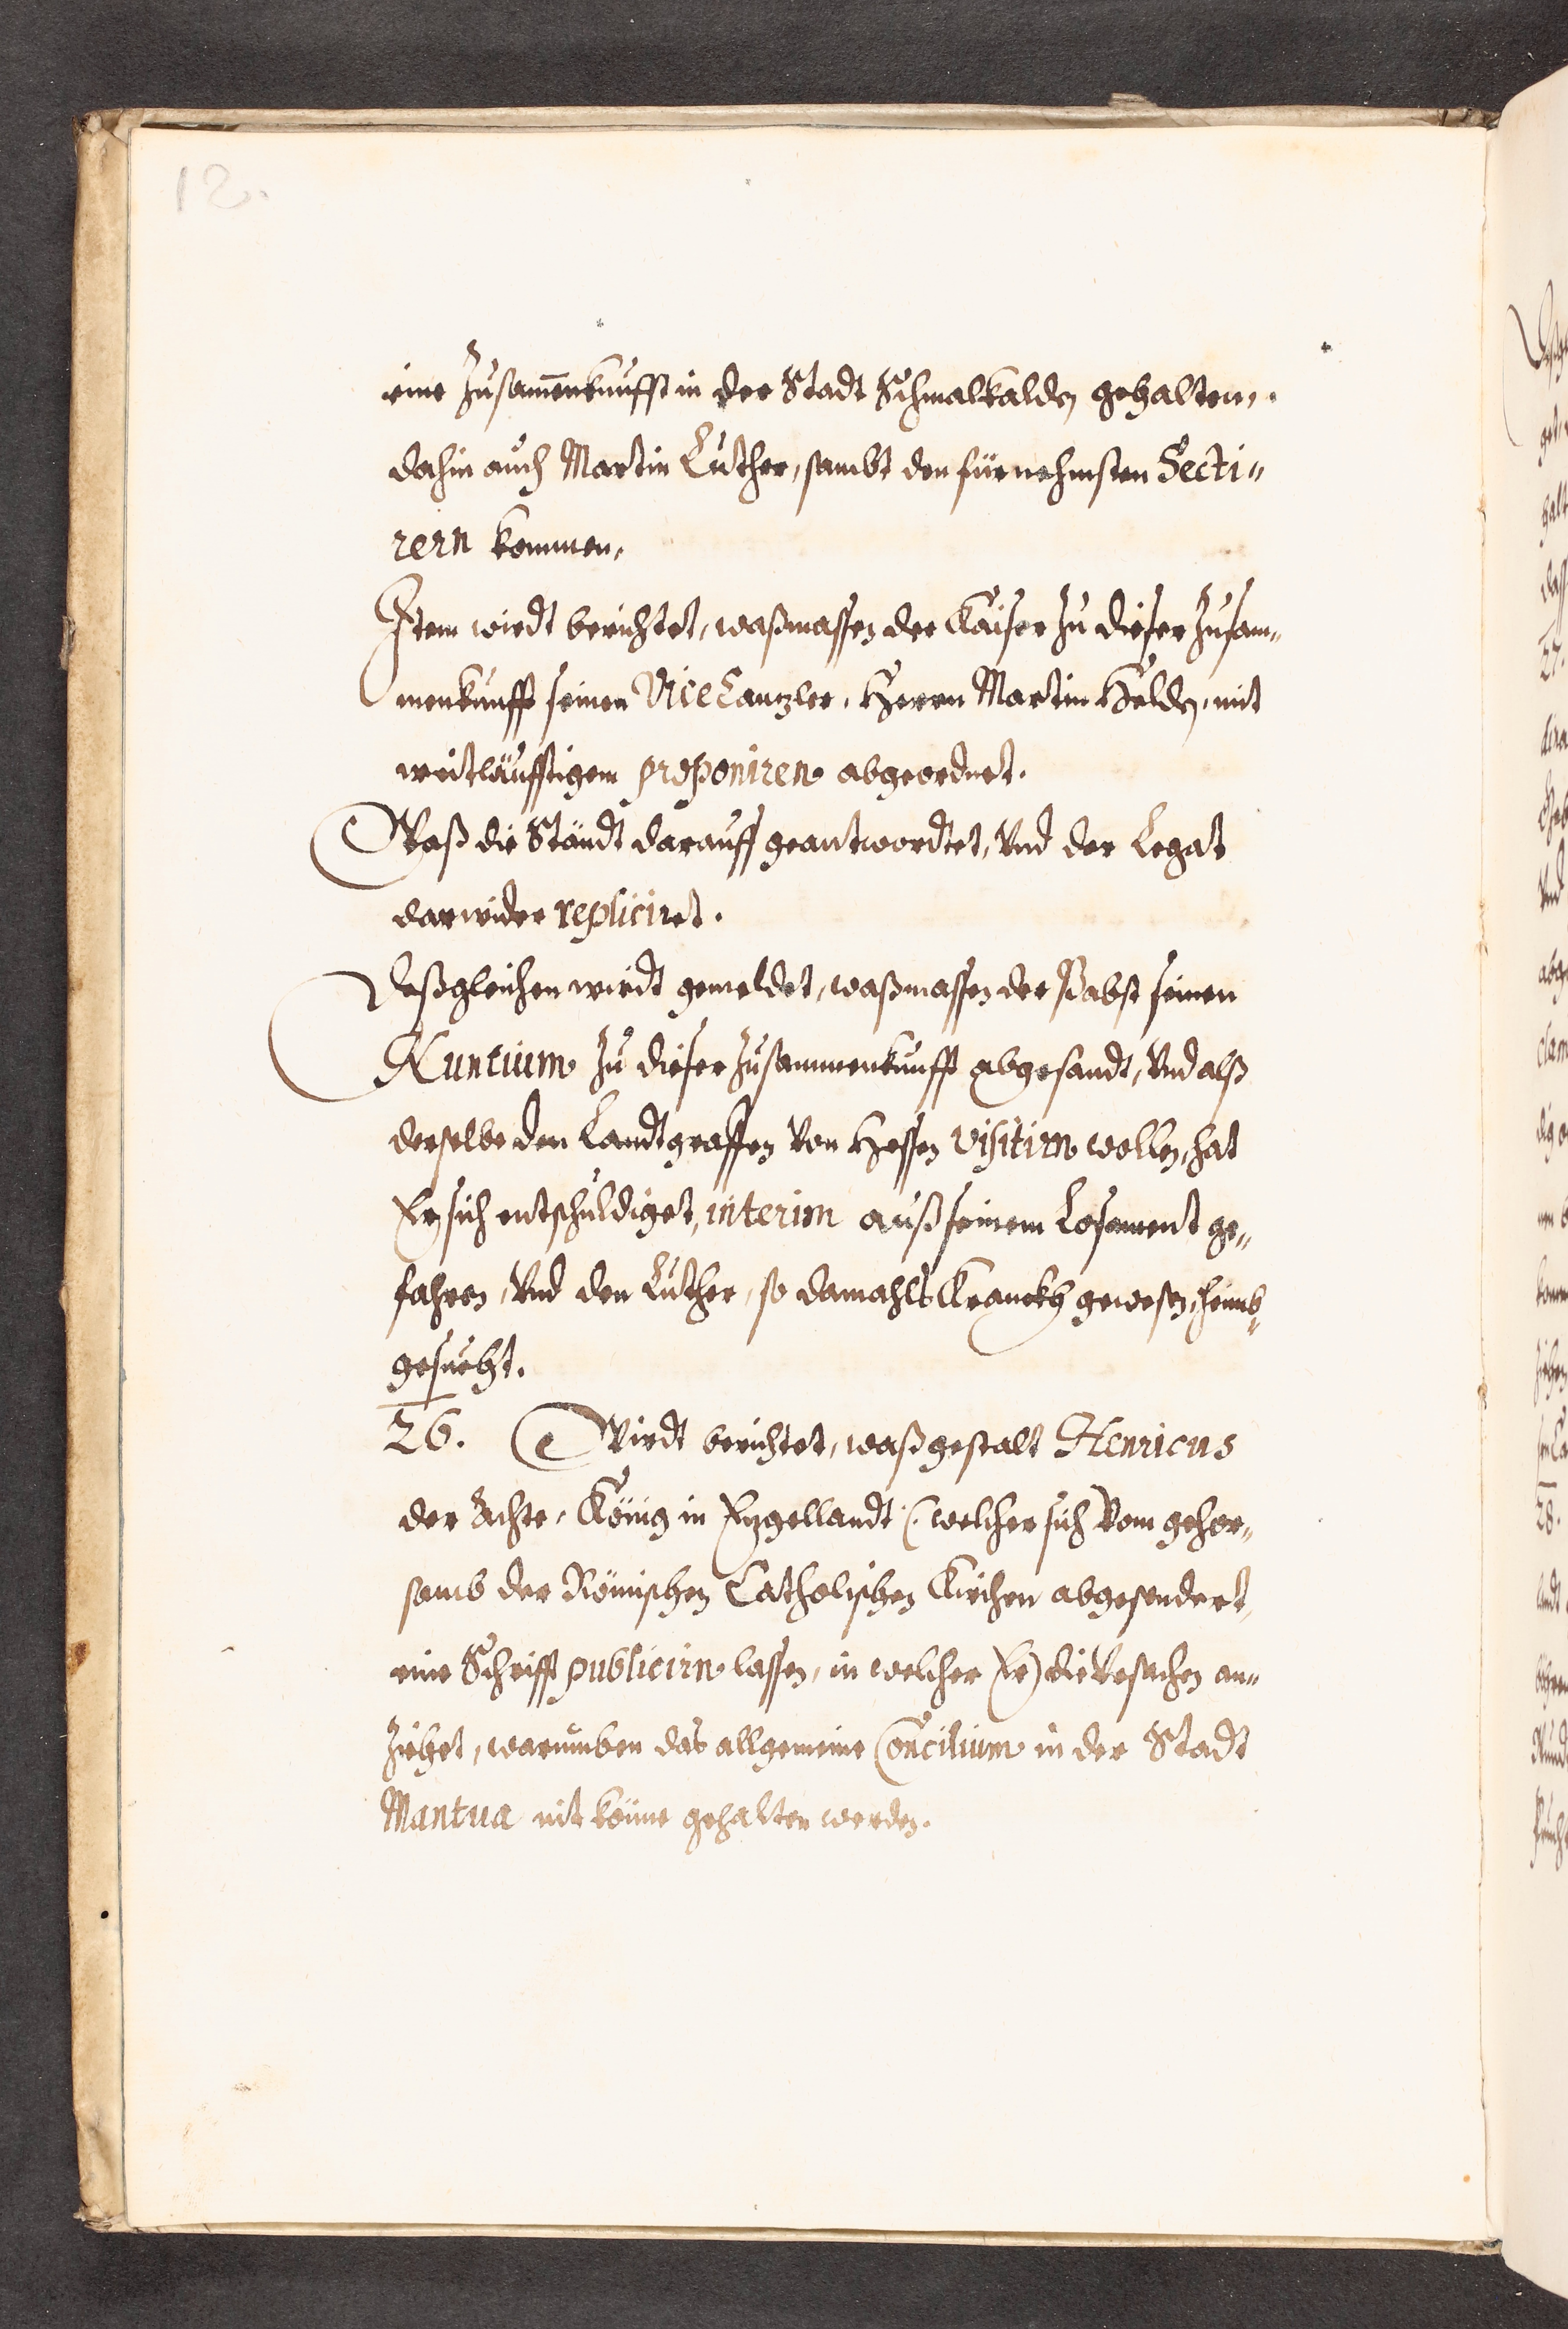 12.
eine Zusam̄enkunfft in der Stadt Schmalkalden gehalten,
dahin auch Martin Luther, sambt den fürnehmsten Secti„
rern kommen.
Item wirdt berichtet, waßmassen der Kaiser zu dieser Zusam„
menkunfft seinen ViceCantzler, Herrn Martin Helden, mit
weitläufftigem proponiren abgeordnet.
Waß die Ständt darauff geantwordtet, Vnd der Legat
darwider repliciret.
Deßgleichen wirdt gemeldet, waßmassen der Pabst seinen
Nuntium zu dieser Zusammenkunfft abgesandt, Vnd alß
derselbe den Landtgraffen Von Hessen visitirn wollen, hat
Er sich entschuldiget, interim auß seinem Losament ge„
fahren, Vnd den Luther, so damahls Kranckh gewesen, heimb„
gesucht.
26. Wirdt berichtet, waßgestalt Henricus
der Achte, König in Engellandt (: welcher sich Vom gehor„
samb der Römischen Catholischen Kirchen abgesondert,
eine Schrifft publicirn lassen, in welcher Er die Vrsachen an„
ziehet, warumben das allgemeine Concilium in der Stadt
Mantua nit könne gehalten werden.